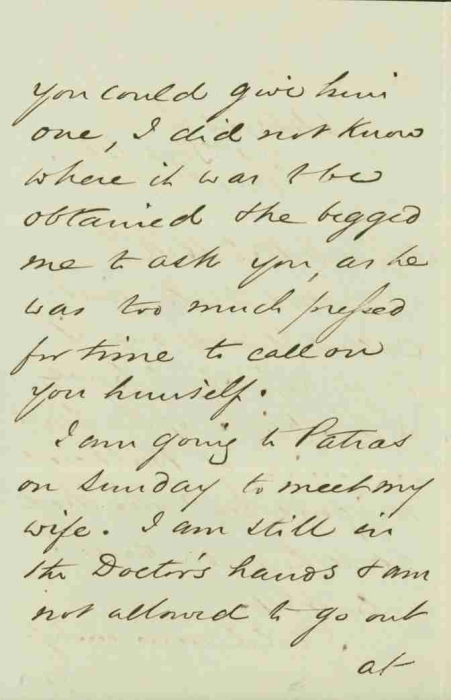 you could give him
one, I did not know
where it was to be
obtained & he begged
me to ask you, as he
was too much pressed
for time to call on
you himself.
I am going to Patras
on Sunday to meet my
wife. I am still in
the Doctor's hands & am
not allowed to go out
at